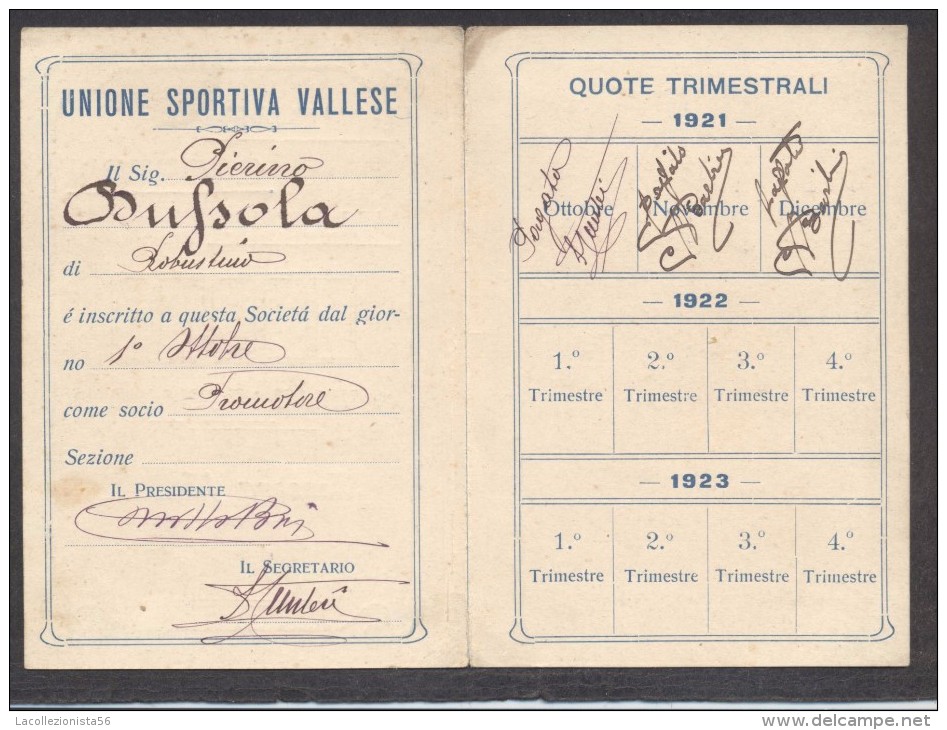 UNIONE SPORTIVA VALLESE
Il Sig. Pierino
Bussola
di Robustino
é inscritto a questa Societá dal gior-
no 1º Ottobre
come socio Promotore
Sezione
IL PRESIDENTE
IL SEGRETARIO
QUOTE TRIMESTRALI
— 1921 —
Ottobre Novembre Dicembre
— 1922 —
1.º 2.º 3.º 4.º
Trimestre Trimestre Trimestre Trimestre
— 1923 —
1.º 2.º 3.º 4.º
Trimestre Trimestre Trimestre Trimestre
Lacollezionista56
delcampe.net